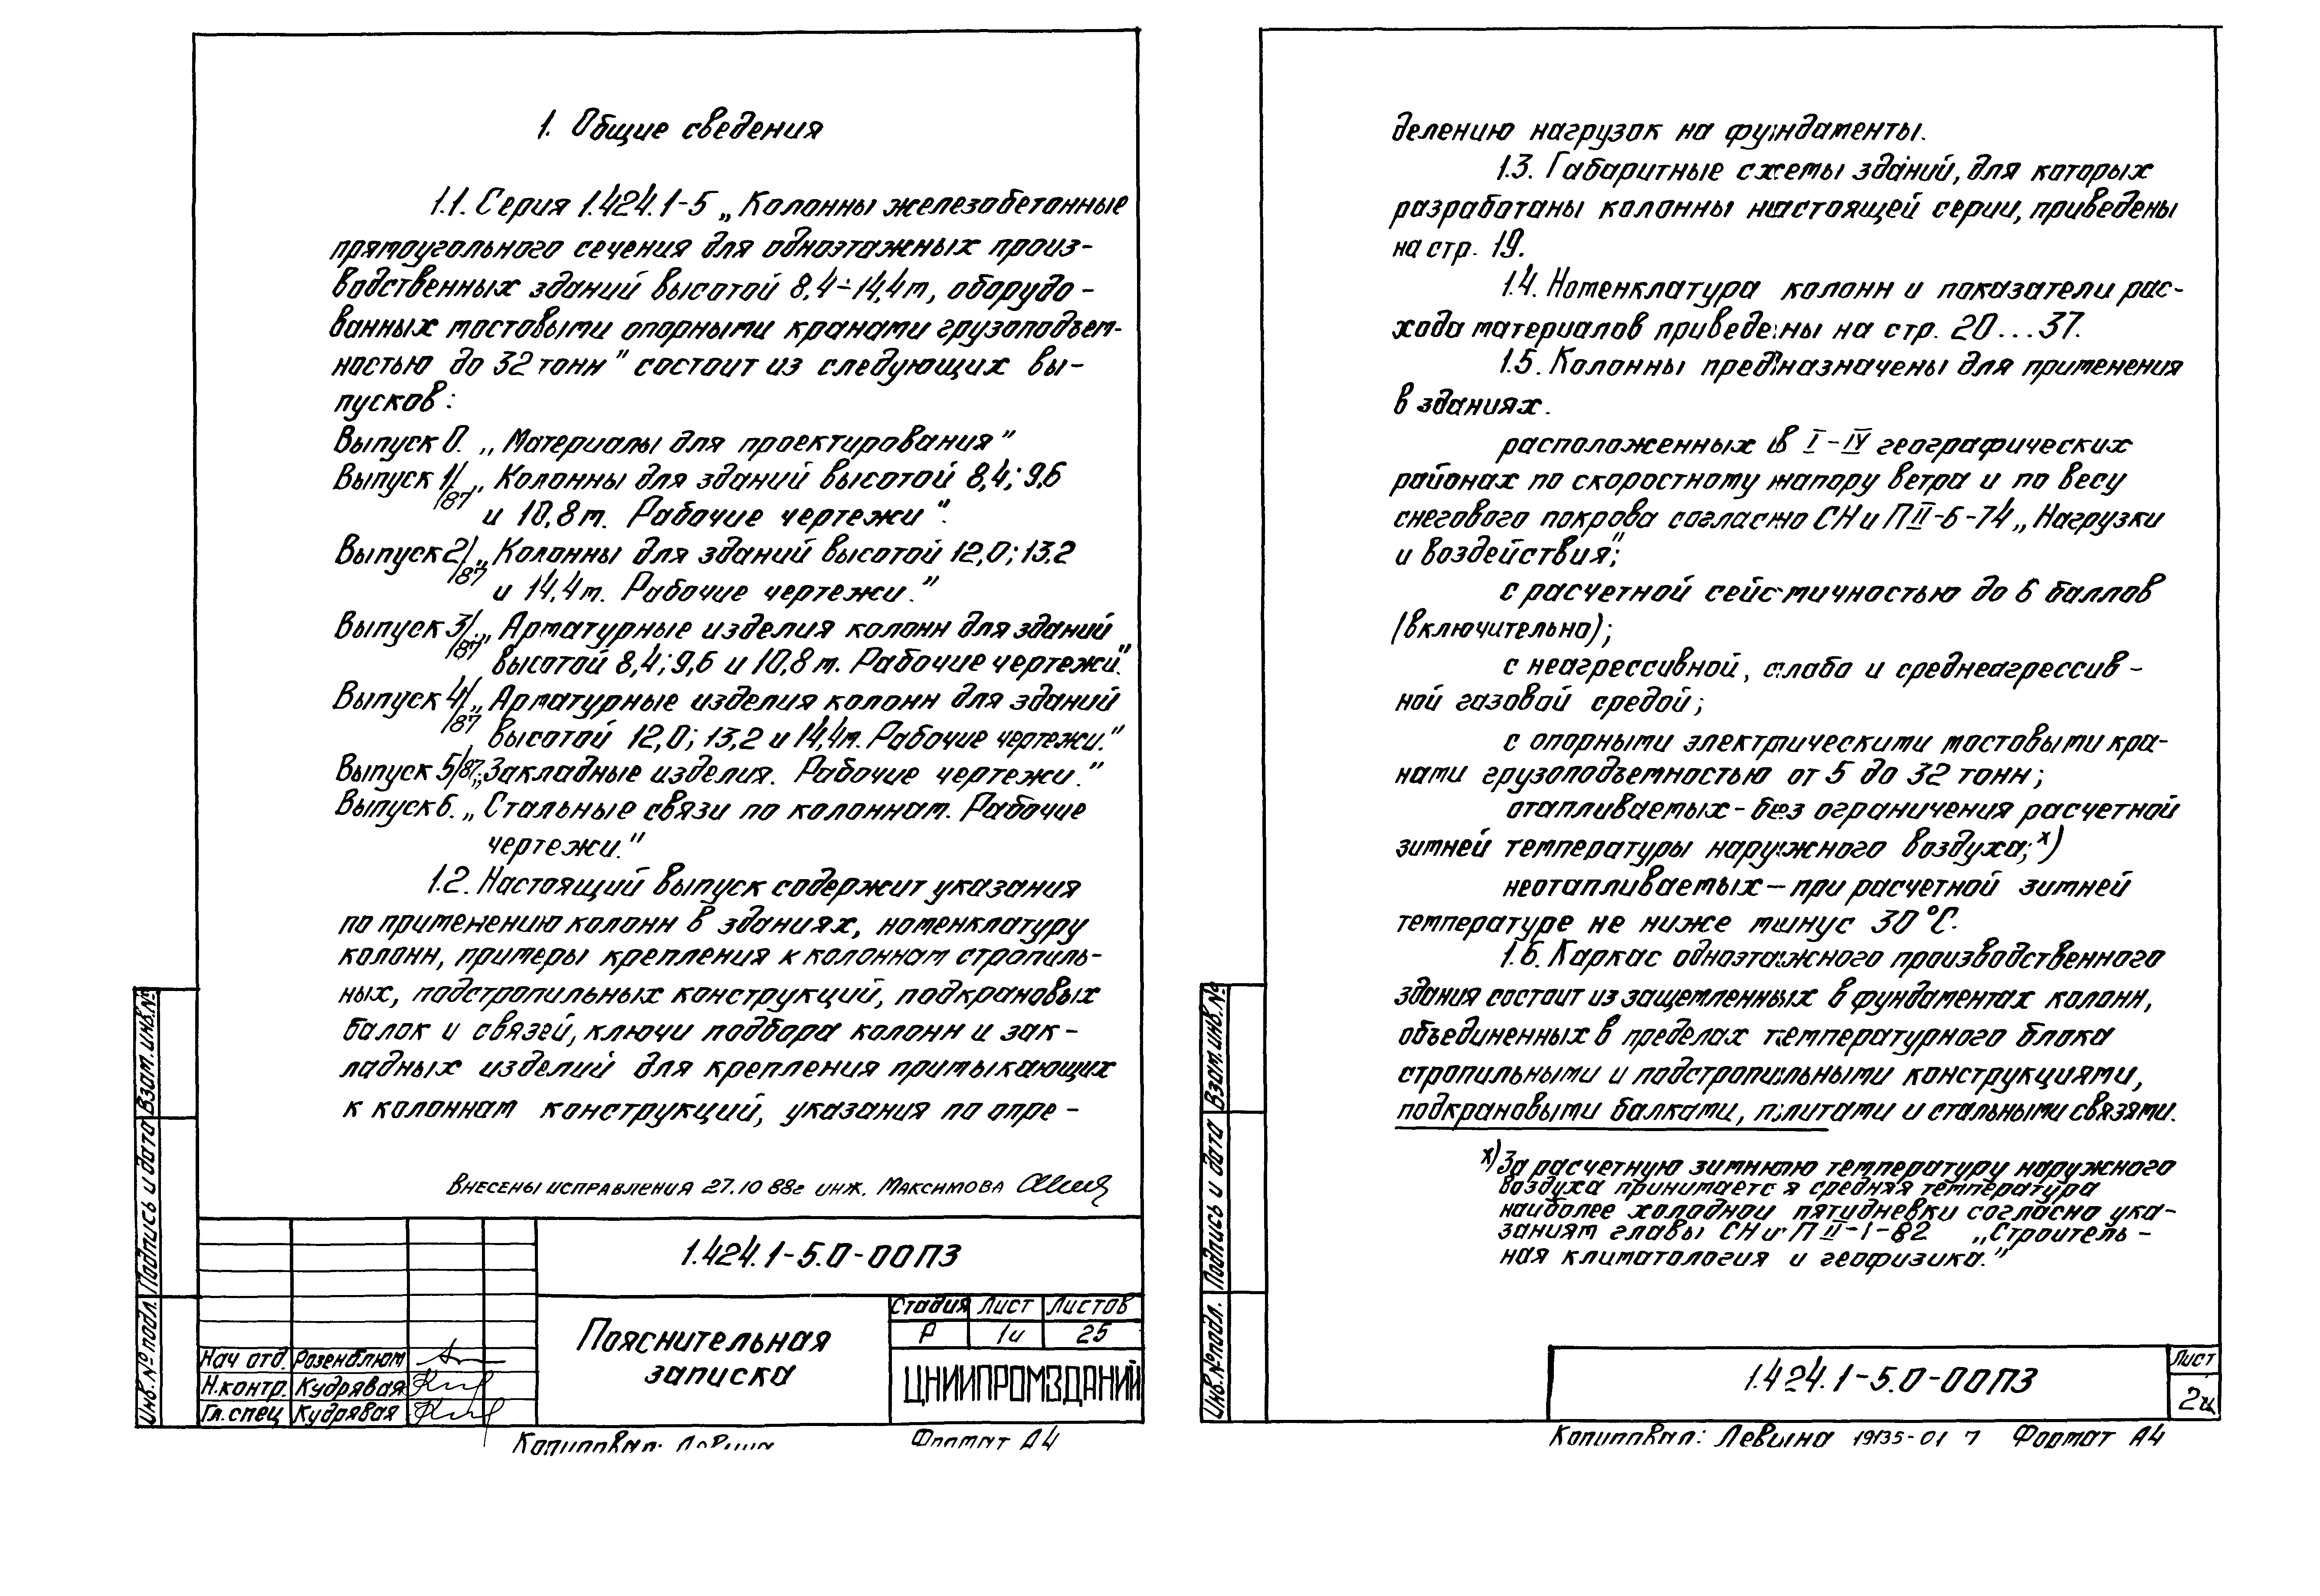 1. Общие сведения
1.1. Серия 1.424.1-5 „Колонны железобетонные
прямоугольного сечения для одноэтажных произ-
водственных зданий высотой 8,4÷14,4м, оборудо-
ванных мостовыми опорными кранами грузоподъем-
ностью до 32 тонн" состоит из следующих вы-
пусков:
Выпуск 0. „Материалы для проектирования"
Выпуск 1/87 „Колонны для зданий высотой 8,4; 9,6
и 10,8м. Рабочие чертежи".
Выпуск 2/87 „Колонны для зданий высотой 12,0; 13,2
и 14,4м. Рабочие чертежи."
Выпуск 3/87 „Арматурные изделия колонн для зданий
высотой 8,4; 9,6 и 10,8м. Рабочие чертежи."
Выпуск 4/87 „Арматурные изделия колонн для зданий
высотой 12,0; 13,2 и 14,4м. Рабочие чертежи."
Выпуск 5/87 „Закладные изделия. Рабочие чертежи."
Выпуск 6. „Стальные связи по колоннам. Рабочие
чертежи."
1.2. Настоящий выпуск содержит указания
по применению колонн в зданиях, номенклатуру
колонн, примеры крепления к колоннам стропиль-
ных, подстропильных конструкций, подкрановых
балок и связей, ключи подбора колонн и зак-
ладных изделий для крепления примыкающих
к колоннам конструкций, указания по опре-
Внесены исправления 27.10 88г инж. Максимова
1.424.1-5.0-00ПЗ
Пояснительная
записка
Стадия Лист Листов
Р 1и 25
ЦНИИПРОМЗДАНИЙ
Нач отд. Розенблюм
Н.контр. Кудрявая
Гл.спец Кудрявая
Инв.№ подл. Подпись и дата Взам.инв.№
Копировал: Левина Формат А4
делению нагрузок на фундаменты.
1.3. Габаритные схемы зданий, для которых
разработаны колонны настоящей серии, приведены
на стр. 19.
1.4. Номенклатура колонн и показатели рас-
хода материалов приведены на стр. 20...37.
1.5. Колонны предназначены для применения
в зданиях.
расположенных в I-IV географических
районах по скоростному напору ветра и по весу
снегового покрова согласно СНиП II-6-74 „Нагрузки
и воздействия";
с расчетной сейсмичностью до 6 баллов
(включительно);
с неагрессивной, слабо и среднеагрессив-
ной газовой средой;
с опорными электрическими мостовыми кра-
нами грузоподъемностью от 5 до 32 тонн;
отапливаемых - без ограничения расчетной
зимней температуры наружного воздуха; х)
неотапливаемых - при расчетной зимней
температуре не ниже минус 30°С.
1.6. Каркас одноэтажного производственного
здания состоит из защемленных в фундаментах колонн,
объединенных в пределах температурного блока
стропильными и подстропильными конструкциями,
подкрановыми балками, плитами и стальными связями.
х) За расчетную зимнюю температуру наружного
воздуха принимается средняя температура
наиболее холодной пятидневки согласно ука-
заниям главы СНиП II-1-82 „Строитель-
ная климатология и геофизика."
1.424.1-5.0-00ПЗ
Лист
2и
Инв.№подл. Подпись и дата Взам.инв.№
Копировал: Левина 19135-01 7 Формат А4